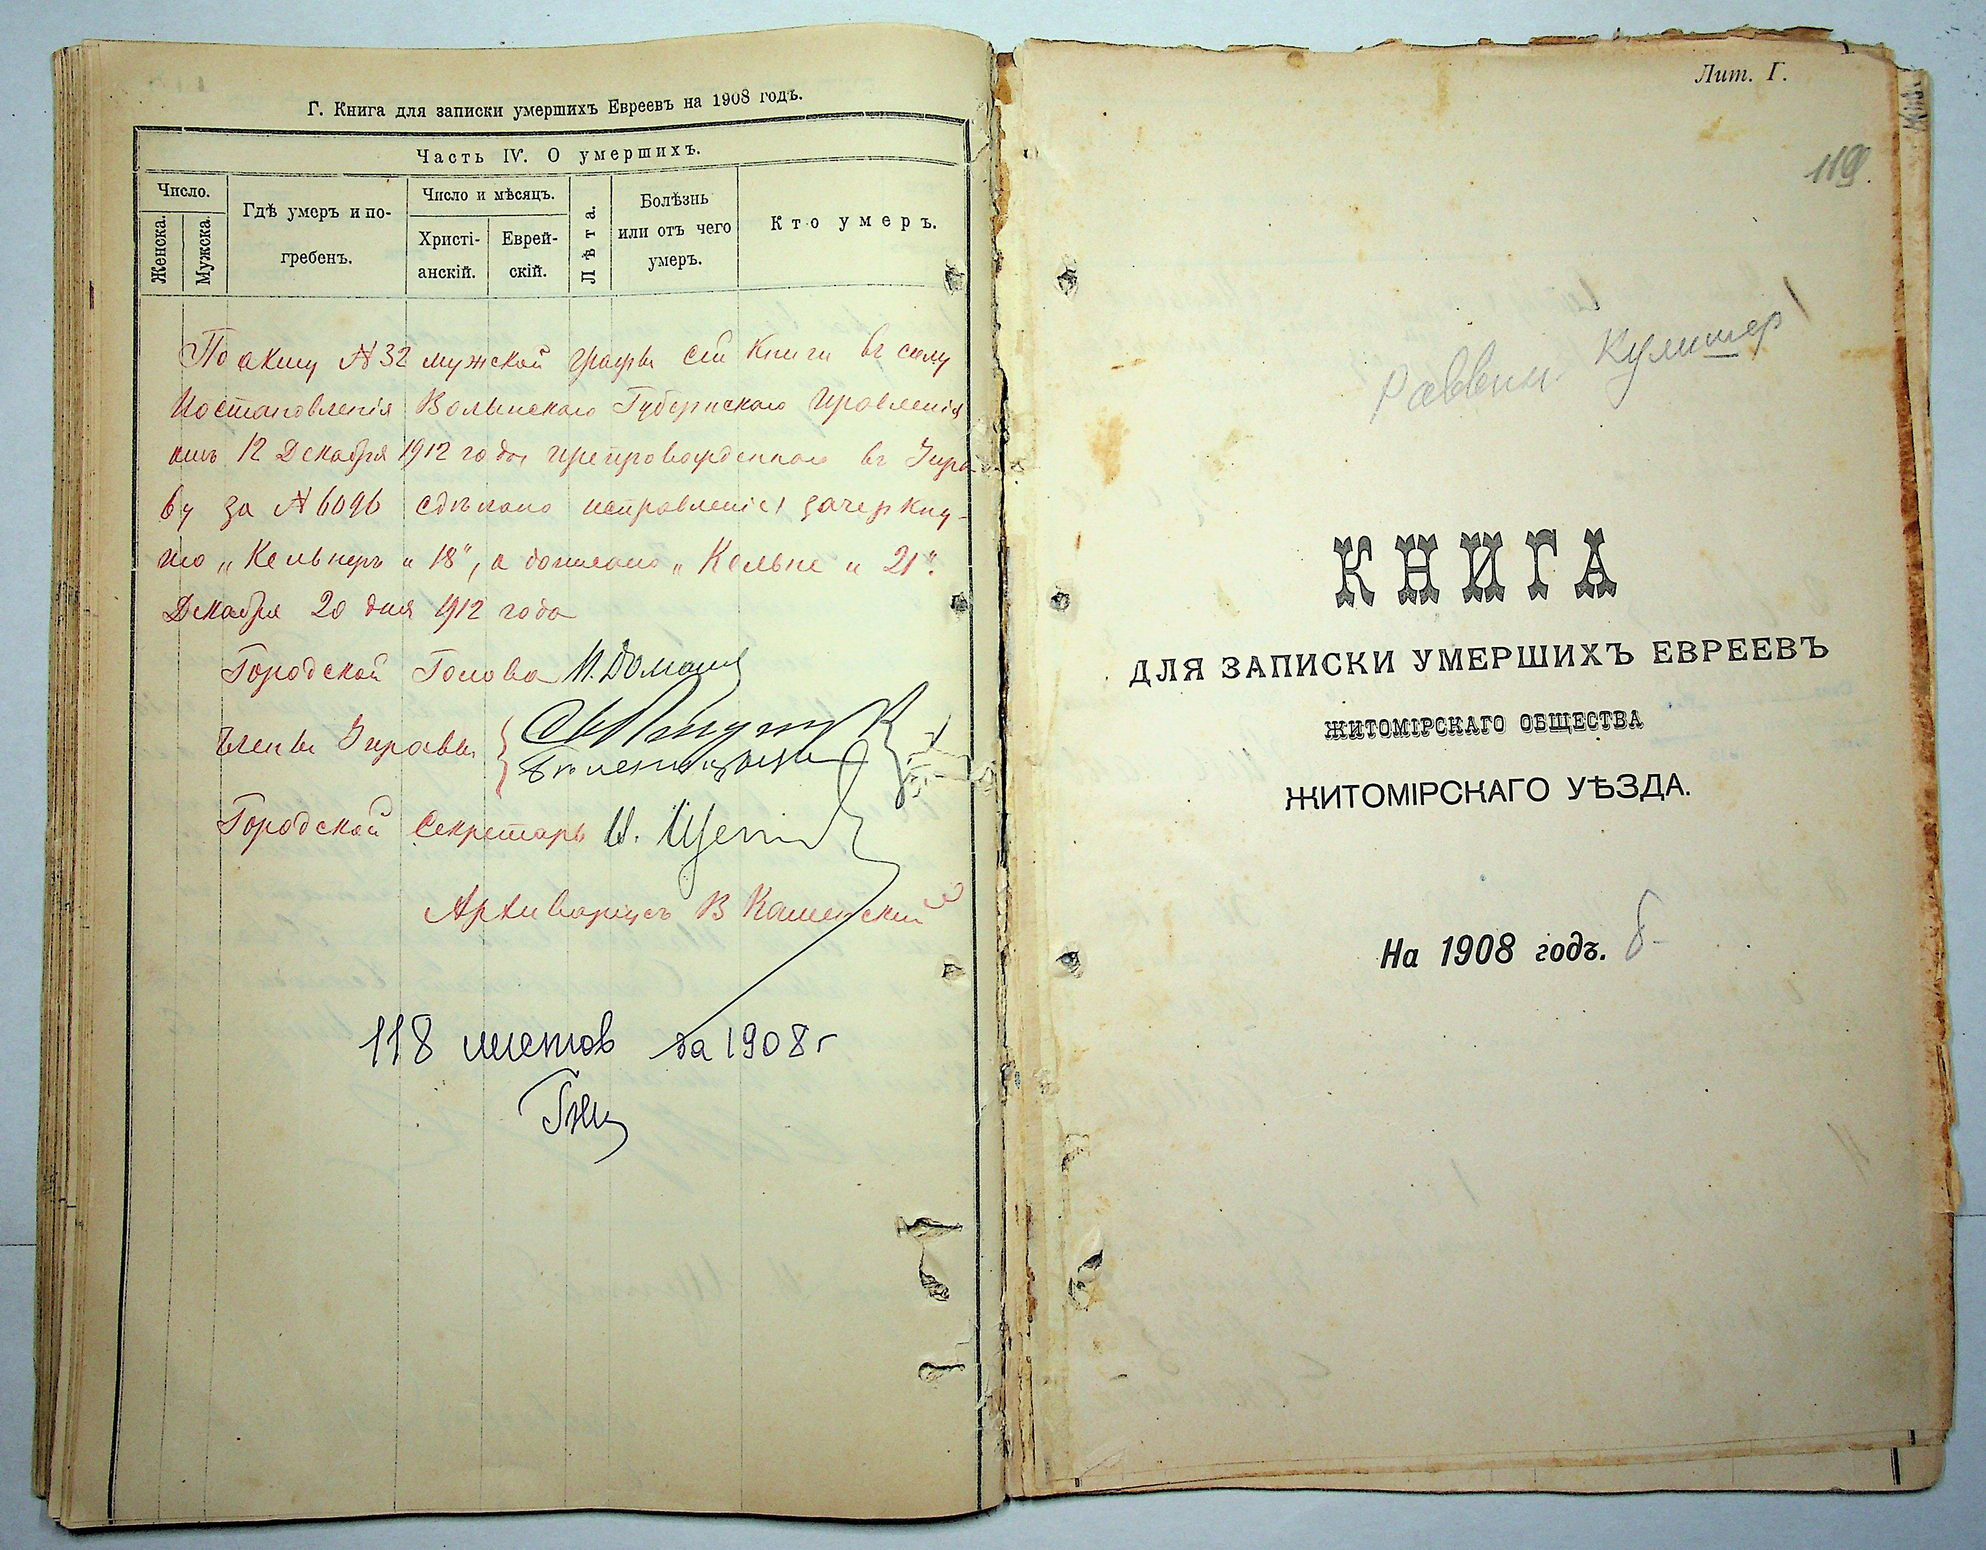 Г. Книга для записки умершихъ Евреевъ на 1908 годъ.
Часть IV. О умершихъ.
Число.
Женска.
Мужска.
Гдѣ умеръ и по-
гребенъ.
Число и мѣсяцъ.
Христі-
анскій.
Еврей-
скій.
Лѣта.
Болѣзнь
или отъ чего
умеръ.
Кто умеръ.
По акту № 32 мужской графы сей книги въ силу
Постановленія Волынскаго Губернскаго Правленія
отъ 12 Декабря 1912 года препровожденнаго въ Упра
ву за № 6096 сдѣлано исправленіе: зачеркну-
то „Кельнеръ" „18", а дописано „Кельне" „21".
Декабря 20 дня 1912 года
Городской Голова
Члены Управы
Городской Секретарь И.
Архиваріусъ В Каменский
118 листов за 1908 г
Лит. Г.
119.
Раввин. Кулишер
КНИГА
ДЛЯ ЗАПИСКИ УМЕРШИХЪ ЕВРЕЕВЪ
ЖИТОМІРСКАГО ОБЩЕСТВА
ЖИТОМІРСКАГО УѢЗДА.
На 1908 годъ.